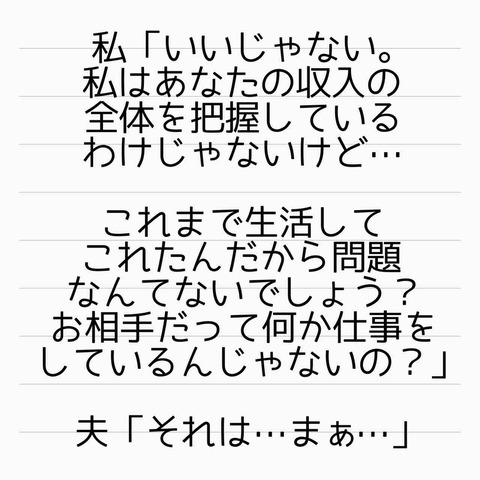 私「いいじゃない。
私はあなたの収入の
全体を把握している
わけじゃないけど…
これまで生活して
これたんだから問題
なんてないでしょう？
お相手だって何か仕事を
しているんじゃないの？」
夫「それは…まぁ…」